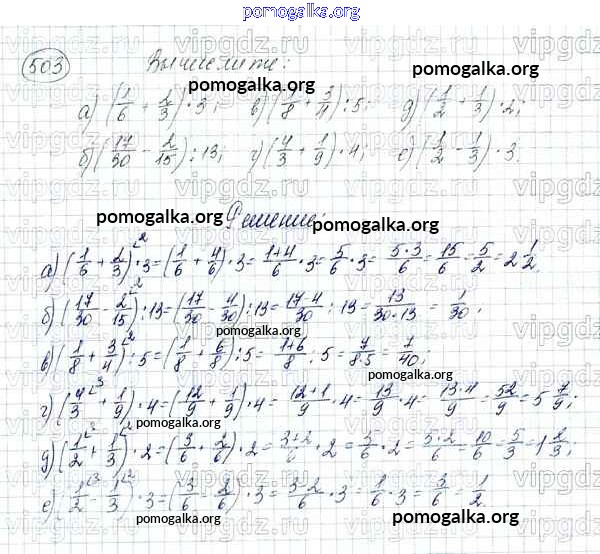 pomogalka.org
503 Вычислите:
pomogalka.org
а) (1/6 + 2/3) · 3; в) (1/8 + 3/4) : 5; д) (1/2 + 1/3) · 2;
б) (17/30 - 2/15) : 13; г) (4/3 + 1/9) · 4; е) (1/2 - 1/3) · 3.
pomogalka.org Решение: pomogalka.org
а) (1/6 + 2/3^2) · 3 = (1/6 + 4/6) · 3 = 1+4/6 · 3 = 5/6 · 3 = 5·3/6 = 15/6 = 5/2 = 2 1/2.
б) (17/30 - 2/15^2) : 13 = (17/30 - 4/30) : 13 = 17-4/30 : 13 = 13/30·13 = 1/30;
pomogalka.org
в) (1/8 + 3/4^2) : 5 = (1/8 + 6/8) : 5 = 1+6/8 : 5 = 7/8·5 = 7/40;
pomogalka.org
г) (4/3^3 + 1/9) · 4 = (12/9 + 1/9) · 4 = 12+1/9 · 4 = 13/9 · 4 = 13·4/9 = 52/9 = 5 7/9;
pomogalka.org pomogalka.org
д) (1/2^3 + 1/3^2) · 2 = (3/6 + 2/6) · 2 = 3+2/6 · 2 = 5/6 · 2 = 5·2/6 = 10/6 = 5/3 = 1 2/3;
pomogalka.org
е) (1/2^3 - 1/3^2) · 3 = (3/6 - 2/6) · 3 = 3-2/6 · 3 = 1/6 · 3 = 3/6 = 1/2.
pomogalka.org pomogalka.org
vipgdz.ru